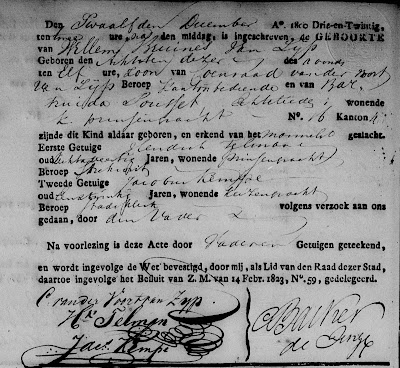 Den Twaalfden December A°. 1800 Drie-en-Twintig,
ten ure, des middag, is ingeschreven, de GEBOORTE
van Willem Bruines Van Zijp
Geboren den Achtsten dezer des avonds
ten Elf ure, Zoon van Coenraad van der Voort
Van Zijp Beroep Kantoorbediende en van
Pousset Echtelieden wonende
prinsengracht N°. 16 Kanton 4
zijnde dit Kind aldaar geboren, en erkend van het Mannelijk geslacht.
Eerste Getuige Hendrik Telman
oud Jaren, wonende Prinsengracht
Beroep
Tweede Getuige Jacobus Kempe
oud Jaren, wonende Keizersgracht
Beroep volgens verzoek aan ons
gedaan, door den Vader

Na voorlezing is deze Acte door Vader en Getuigen geteekend,
en wordt ingevolge de Wet bevestigd, door mij, als Lid van den Raad dezer Stad,
daartoe ingevolge het Besluit van Z. M. van 14 Febr. 1823, N°. 59, gedelegeerd.
C van der Voort van Zijp
Hk Telman
Jacs Kempe